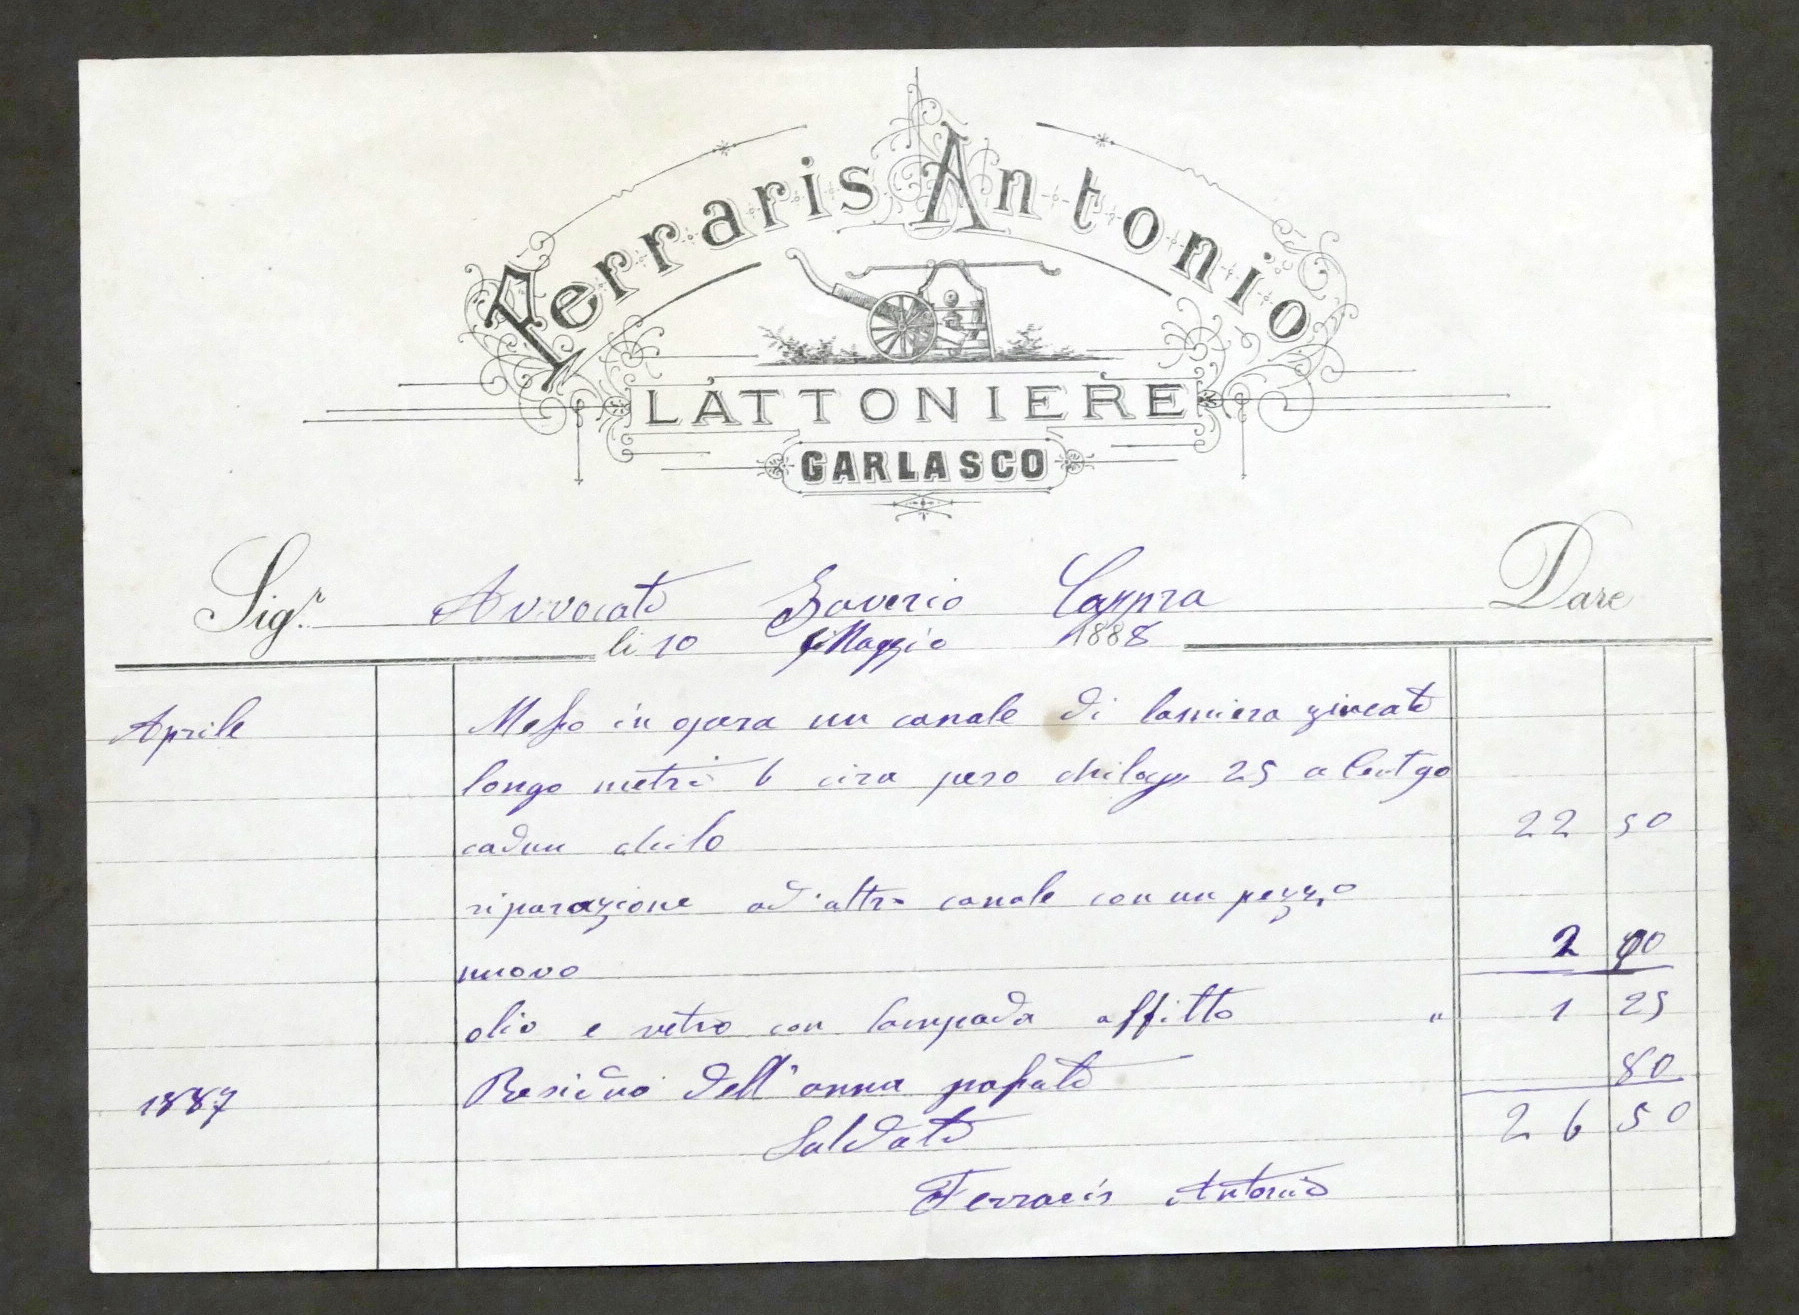 Ferraris Antonio
LATTONIERE
GARLASCO
Sig.r Avvocato Saverio Cappra Dare
li 10 Maggio 1888
Aprile Messo in opera un canale di lamiera zincato
longo metri 6 cira peso chilog 25 a Cent 90
cadun chilo 22 50
riparazione ad altro canale con un pezzo
nuovo 2 00
olio e vetro con lampada affitto " 1 25
1887 Residuo dell'anna passato 80
Saldato 26 50
Ferraris Antonio